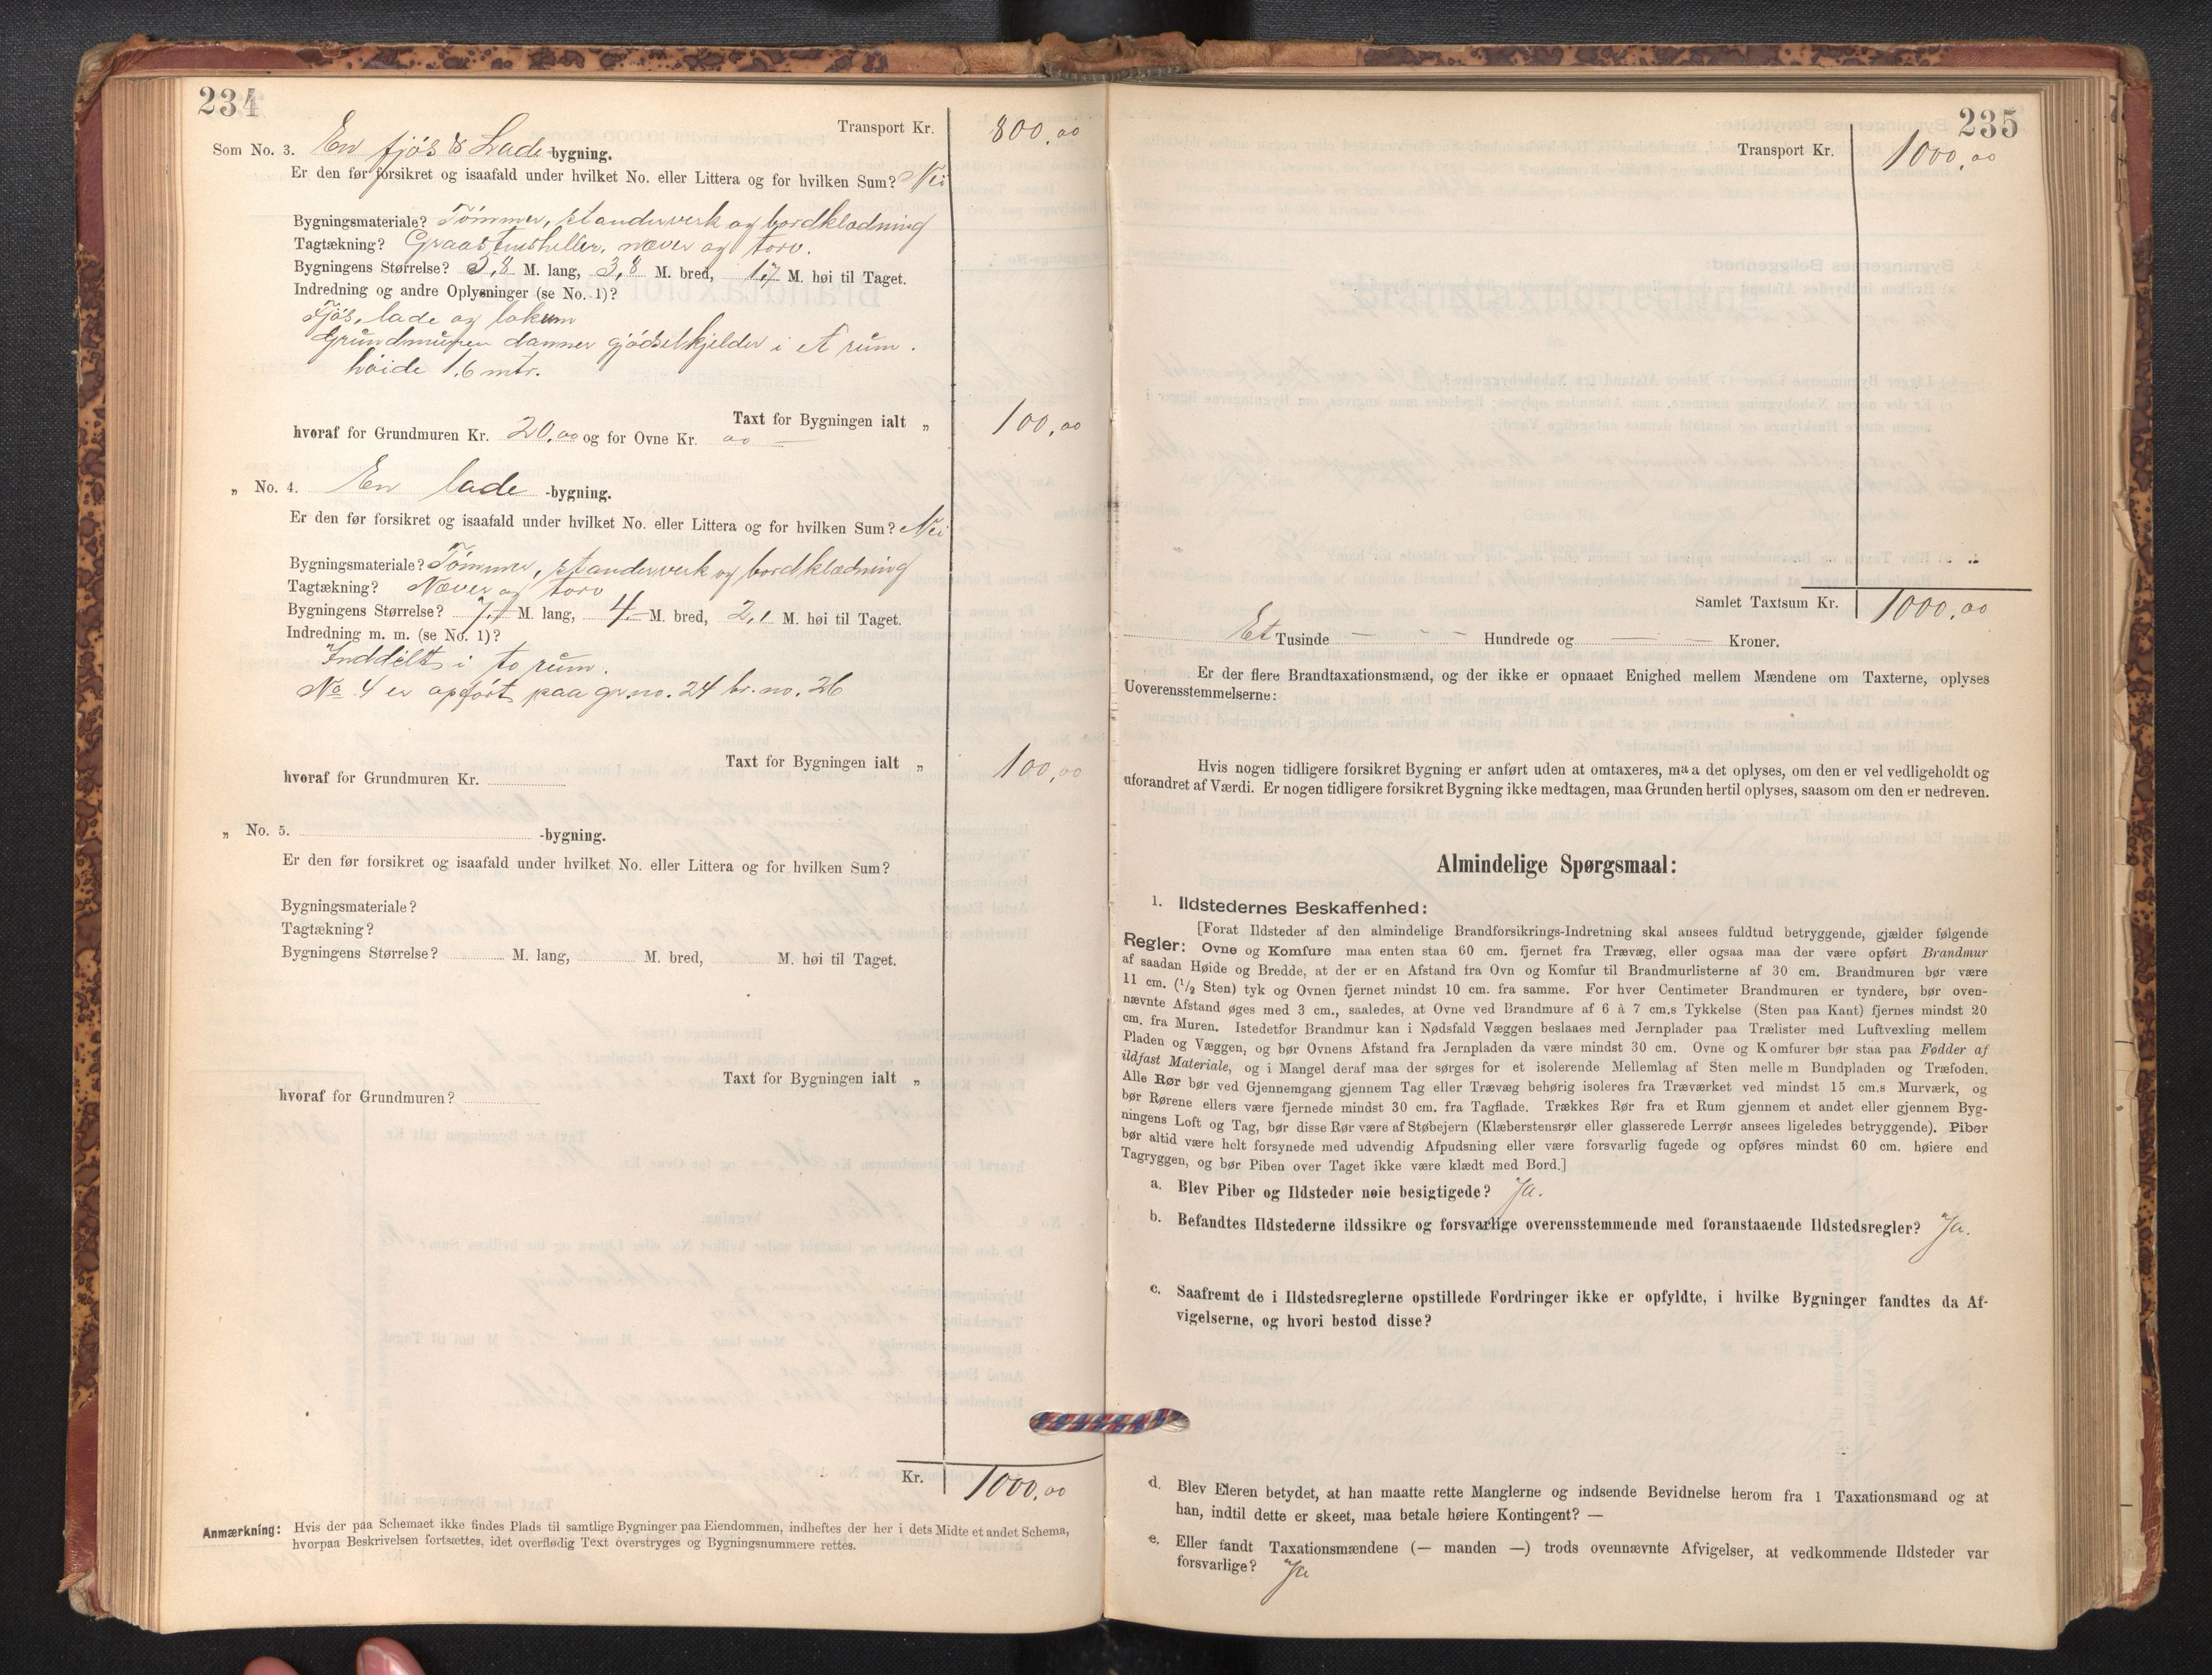 234
Transport Kr. 800,00
Som No. 3. En fjös & Lade-bygning.
Er den før forsikret og isaafald under hvilket No. eller Littera og for hvilken Sum? Nei
Bygningsmateriale? Tömmer, standerverk og bordklædning
Tagtækning? Graastensheller, næver og torv.
Bygningens Størrelse? 5,8 M. lang, 3,8 M. bred, 1,7 M. høi til Taget.
Indredning og andre Oplysninger (se No. 1)?
Fjös, lade og lokum
Grundmuren danner gjödselkjelder i et rum.
höide 1.6 mtr.
Taxt for Bygningen ialt „ 100,00
hvoraf for Grundmuren Kr. 20,00 og for Ovne Kr. 00 —
„ No. 4. En lade -bygning.
Er den før forsikret og isaafald under hvilket No. eller Littera og for hvilken Sum? Nei
Bygningsmateriale? Tömmer, standerverk og bordklædning
Tagtækning? Næver og torv
Bygningens Størrelse? 7,7 M. lang, 4,- M. bred, 2,1 M. høi til Taget.
Indredning m. m. (se No. 1)?
Inddelt i to rum.
No 4 er opfört paa gr.no. 24 br.no. 26
Taxt for Bygningen ialt „ 100,00
hvoraf for Grundmuren Kr.
„ No. 5. -bygning.
Er den før forsikret og isaafald under hvilket No. eller Littera og for hvilken Sum?
Bygningsmateriale?
Tagtækning?
Bygningens Størrelse? M. lang, M. bred, M. høi til Taget.
Taxt for Bygningen ialt „
hvoraf for Grundmuren?
Kr. 1000,00
Anmærkning: Hvis der paa Schemaet ikke findes Plads til samtlige Bygninger paa Eiendommen, indheftes der her i dets Midte et andet Schema,
hvorpaa Beskrivelsen fortsættes, idet overflødig Text overstryges og Bygningsnummere rettes.
235
Transport Kr. 1000,00
Samlet Taxtsum Kr. 1000,00
Et Tusinde — — — Hundrede og — — Kroner.
Er der flere Brandtaxationsmænd, og der ikke er opnaaet Enighed mellem Mændene om Taxterne, oplyses
Uoverensstemmelserne:
Hvis nogen tidligere forsikret Bygning er anført uden at omtaxeres, maa det oplyses, om den er vel vedligeholdt og
uforandret af Værdi. Er nogen tidligere forsikret Bygning ikke medtagen, maa Grunden hertil oplyses, saasom om den er nedreven.
Almindelige Spørgsmaal:
1. Ildstedernes Beskaffenhed:
[Forat Ildsteder af den almindelige Brandforsikrings-Indretning skal ansees fuldtud betryggende, gjælder følgende
Regler: Ovne og Komfure maa enten staa 60 cm. fjernet fra Trævæg, eller ogsaa maa der være opført Brandmur
af saadan Høide og Bredde, at der er en Afstand fra Ovn og Komfur til Brandmurlisterne af 30 cm. Brandmuren bør være
11 cm. (1/2 Sten) tyk og Ovnen fjernet mindst 10 cm. fra samme. For hver Centimeter Brandmuren er tyndere, bør oven-
nævnte Afstand øges med 3 cm., saaledes, at Ovne ved Brandmure af 6 à 7 cm.s Tykkelse (Sten paa Kant) fjernes mindst 20
cm. fra Muren. Istedetfor Brandmur kan i Nødsfald Væggen beslaaes med Jernplader paa Trælister med Luftvexling mellem
Pladen og Væggen, og bør Ovnens Afstand fra Jernpladen da være mindst 30 cm. Ovne og Komfurer bør staa paa Fødder af
ildfast Materiale, og i Mangel deraf maa der sørges for et isolerende Mellemlag af Sten mellem Bundpladen og Træfoden.
Alle Rør bør ved Gjennemgang gjennem Tag eller Trævæg behørig isoleres fra Træværket ved mindst 15 cm.s Murværk, og
bør Rørene ellers være fjernede mindst 30 cm. fra Tagflade. Trækkes Rør fra et Rum gjennem et andet eller gjennem Byg-
ningens Loft og Tag, bør disse Rør være af Støbejern (Klæberstensrør eller glasserede Lerrør ansees ligeledes betryggende). Piber
bør altid være holt forsynede med udvendig Afpudsning eller være forsvarlig fugede og opføres mindst 60 cm. høiere end
Tagryggen, og bør Piben over Taget ikke være klædt med Bord.]
a. Blev Piber og Ildsteder nøie besigtigede? Ja.
b. Befandtes Ildstederne ildssikre og forsvarlige overensstemmende med foranstaaende Ildstedsregler? Ja.
c. Saafremt de i Ildstedsreglerne opstillede Fordringer ikke er opfyldte, i hvilke Bygninger fandtes da Af-
vigelserne, og hvori bestod disse?
d. Blev Eieren betydet, at han maatte rette Manglerne og indsende Bevidnelse herom fra 1 Taxationsmand og at
han, indtil dette er skeet, maa betale høiere Kontingent? —
e. Eller fandt Taxationsmændene (— manden —) trods ovennævnte Afvigelser, at vedkommende Ildsteder var
forsvarlige? Ja